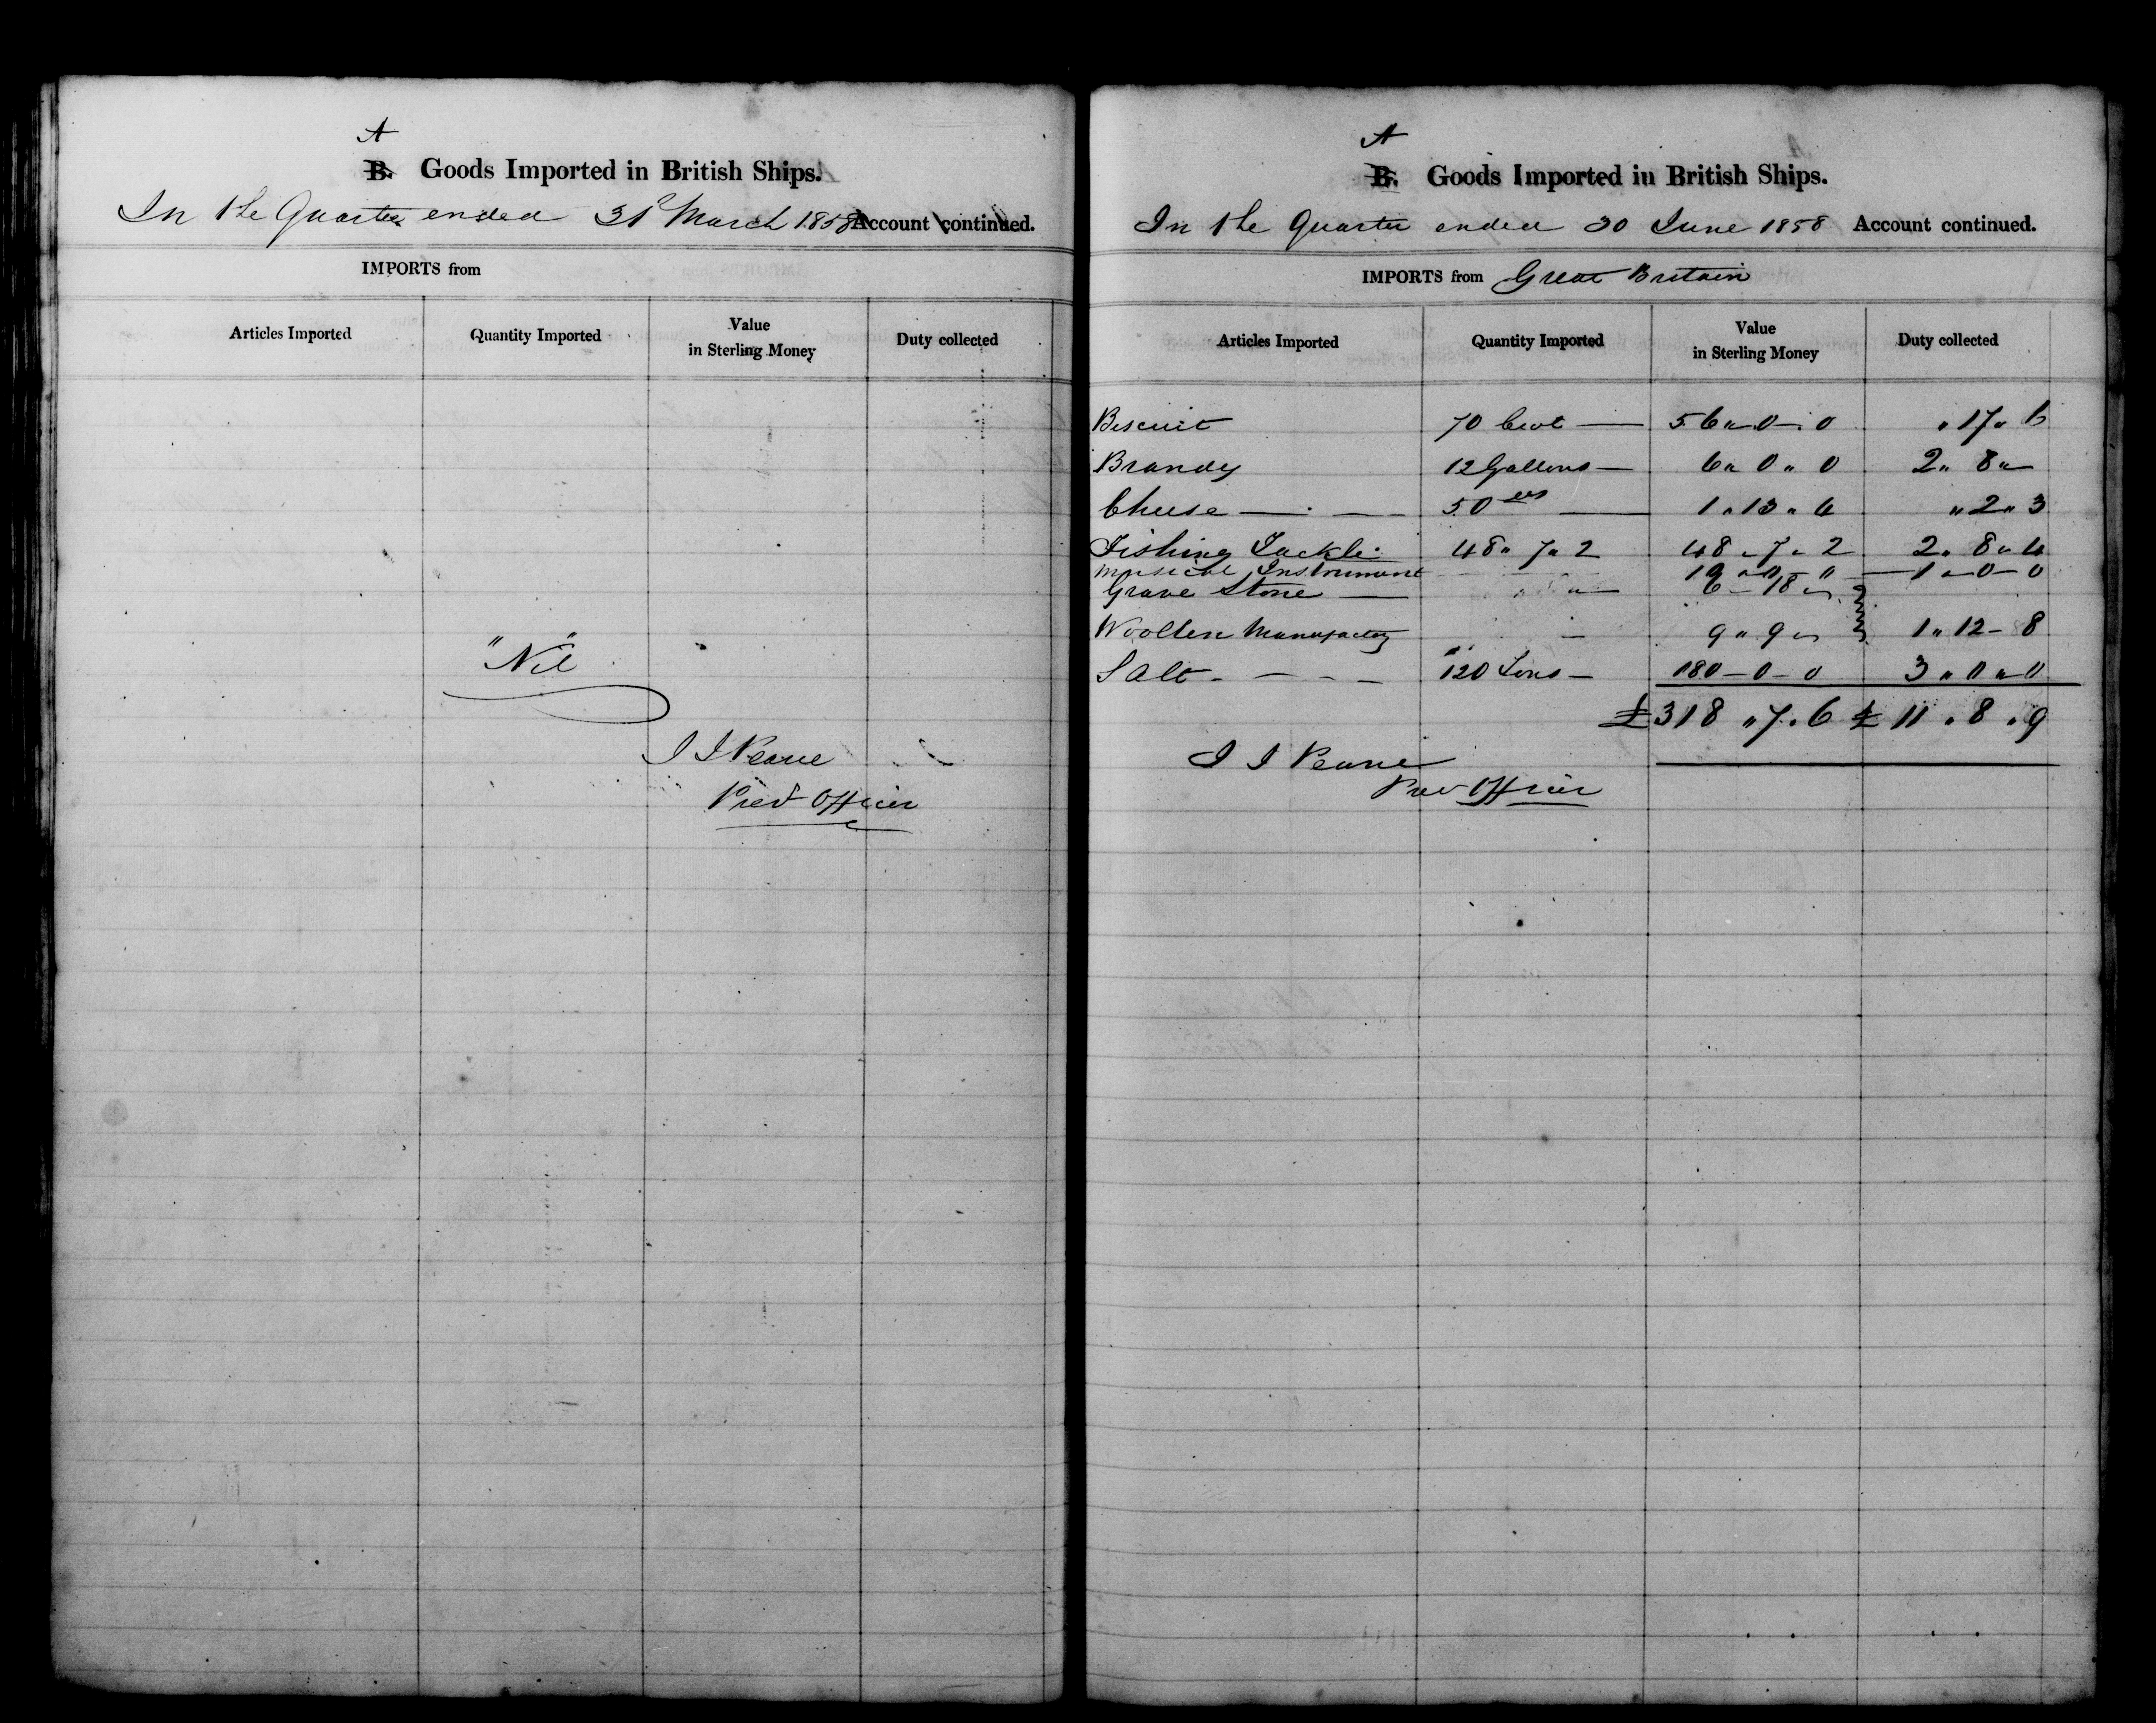 A
B. Goods Imported in British Ships.
In the Quarter ended 31st March 1858 Account continued.
IMPORTS from
Articles Imported Quantity Imported Value in Sterling Money Duty collected
"Nil"
J J Pearce
Prev Officer
A
B. Goods Imported in British Ships.
In the Quarter ended 30 June 1858 Account continued.
IMPORTS from Great Britain
Articles Imported Quantity Imported Value in Sterling Money Duty collected
Biscuit 70 Cwt — 56 " 0 - 0 " 17 " 6
Brandy 12 Gallons — 6 " 0 " 0 2 " 8 " —
Cheese — - — 50 lbs — 1 " 13 " 4 " 2 " 3
Fishing Tackle 48 " 7 " 2 48 " 7 " 2 2 " 8 " 4
Musical Instrument — 10 " 0 " 0 — 1 - 0 - 0
Grave Stone — " — 6 - 18 "
Woollen Manufactory — 9 " 9 " 1 " 12 - 8
Salt - — - — 120 Tons — 180 - 0 - 0 3 " 0 " 0
£318 " 7 . 6 £ 11 . 8 . 9
J J Pearce
Prev Officer